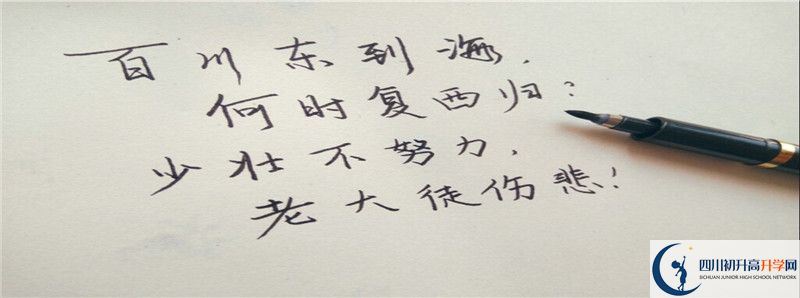 百川东到海,
何时复西归?
少壮不努力,
老大徒伤悲!
四川初升高升学网
SICHUAN JUNIOR HIGH SCHOOL NETWORK